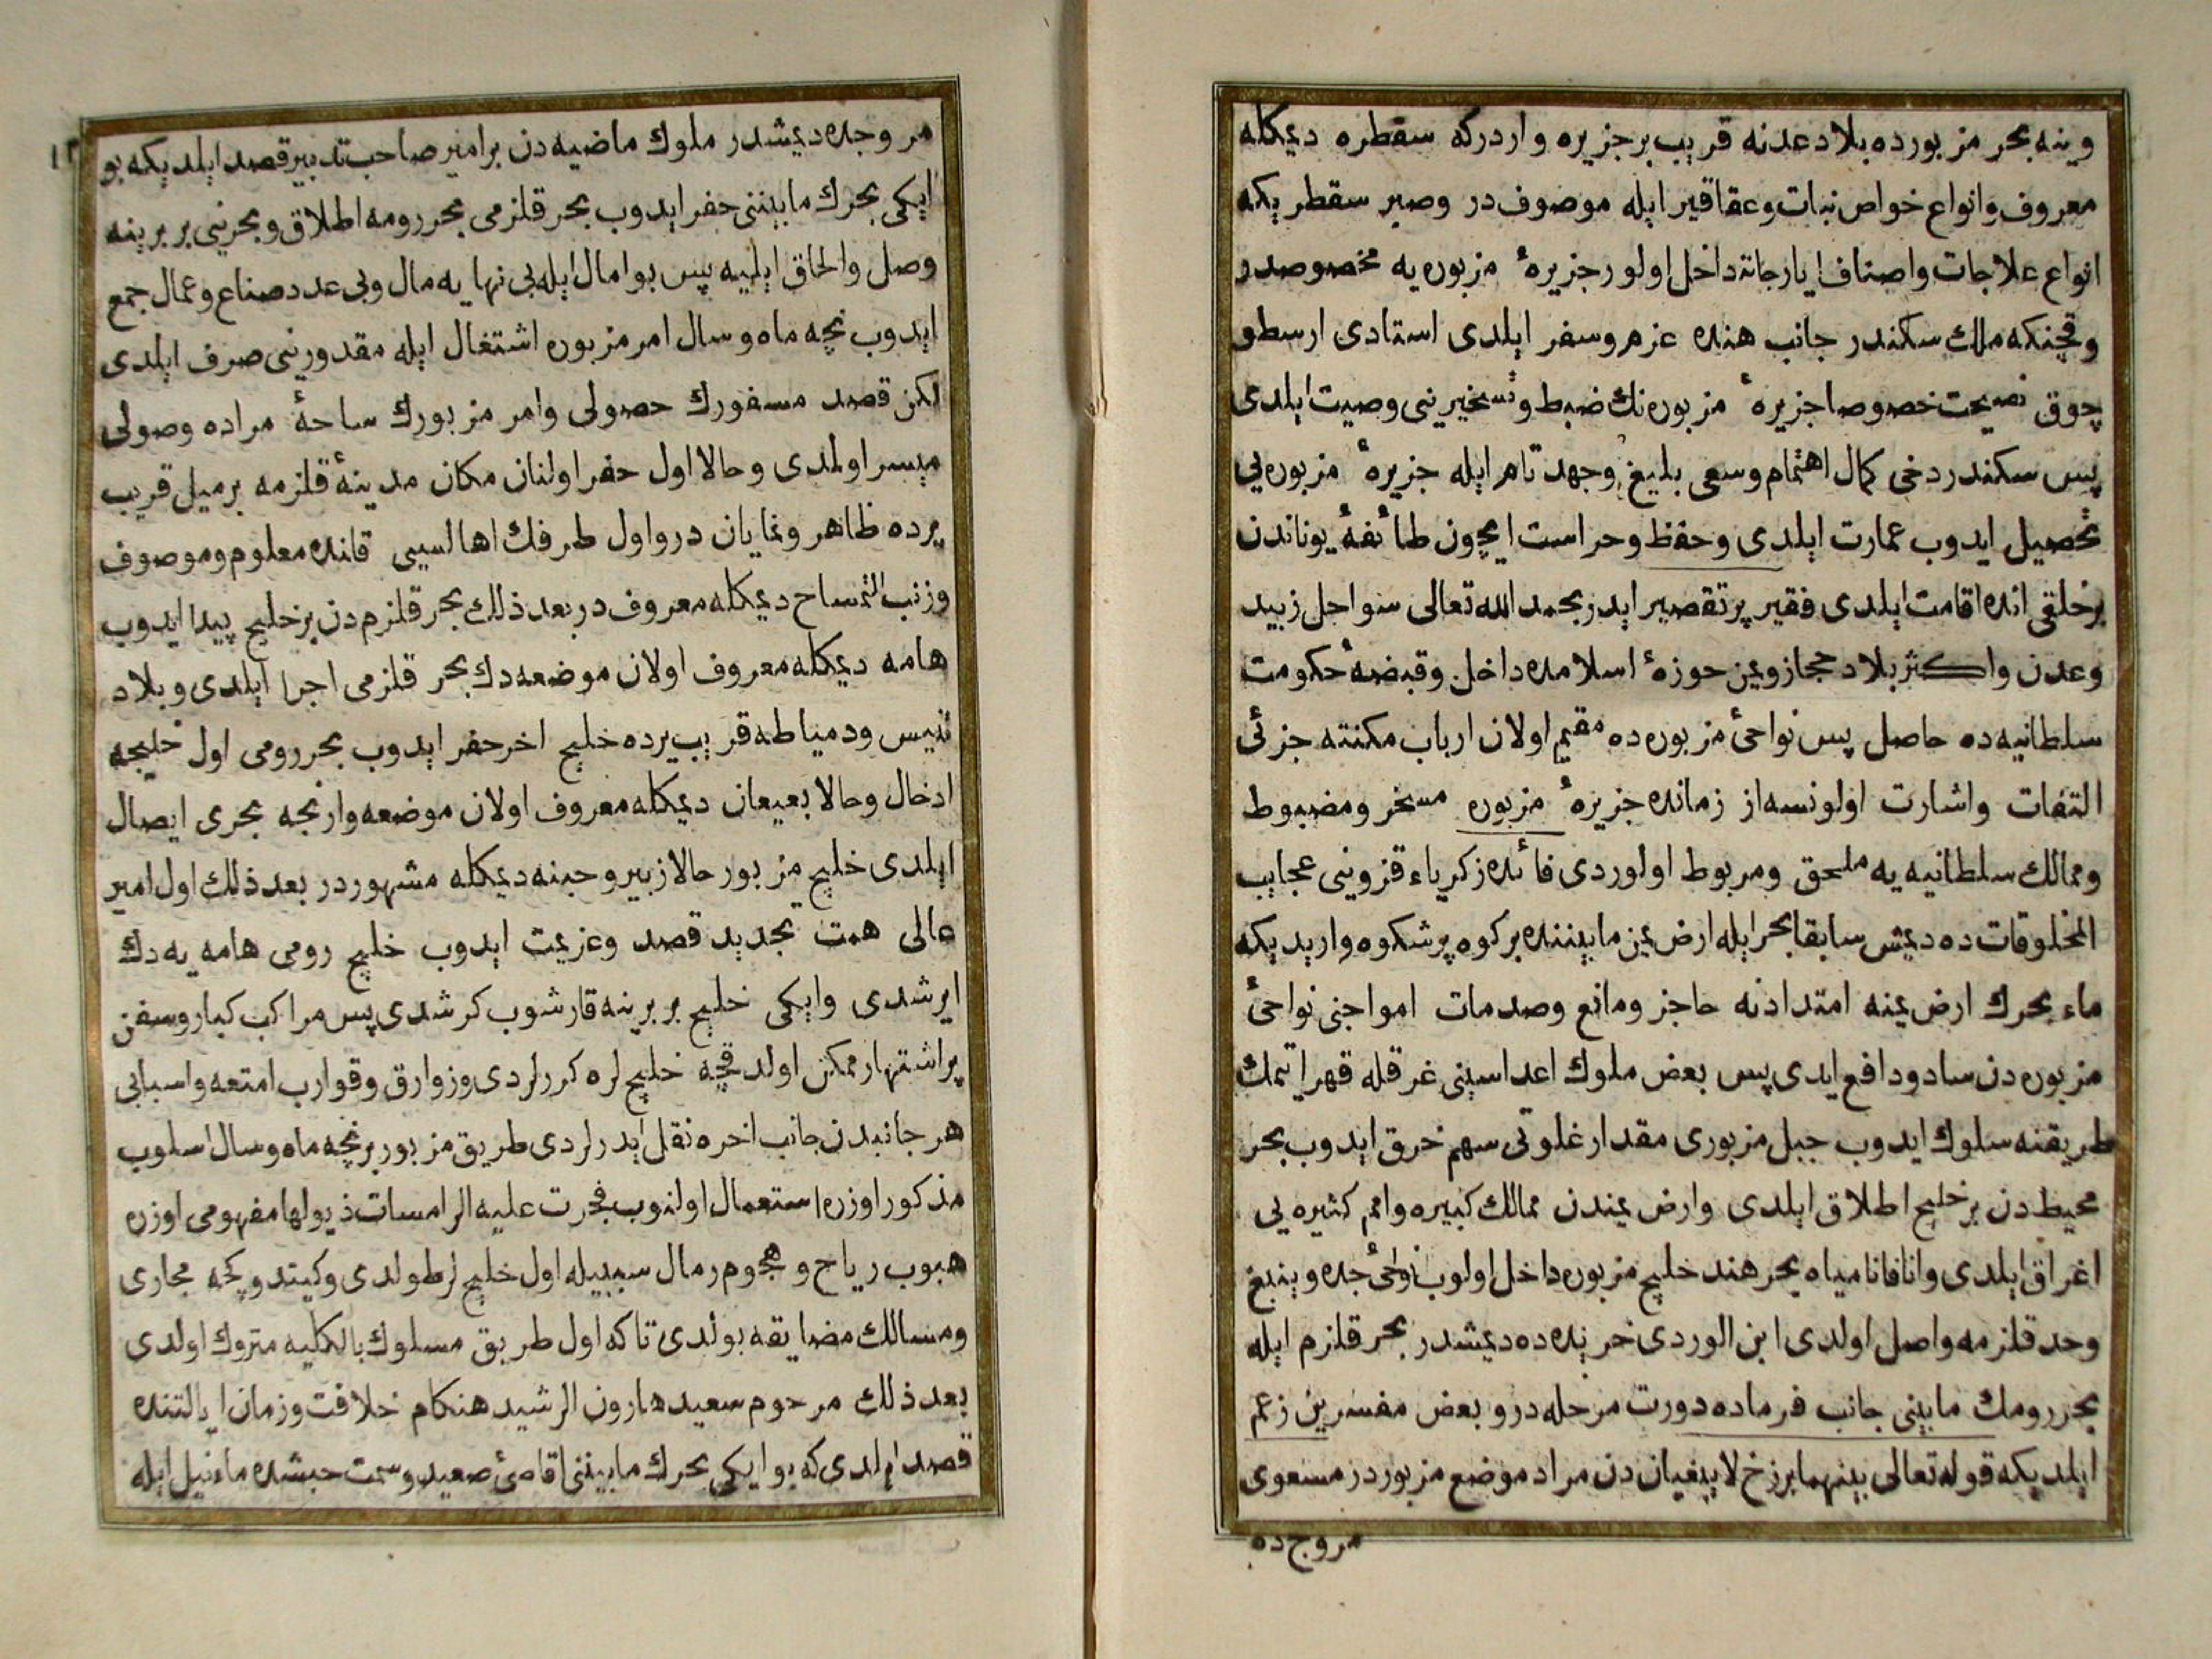 وينه بحر مزبورده بلاد عدنه قريب بر جزيره واردركه سقطره ديمكله
معروف وانواع خواص نبات وعقاقير ايله موصوفدر وصبر سقطر يكه
انواع علاجات واصناف ايارجاته داخل اولور جزيرهٔ مزبوره يه مخصوصدر
وقچنكه ملك سكندر جانب هنده عزم وسفر ايلدى استادى ارسطو
چوق نصيحت خصوصا جزيرهٔ مزبوره نك ضبط وتسخيرينى وصيت ايلدى
پس سكندر دخى كمال اهتمام وسعى بليغ وجهد تام ايله جزيرهٔ مزبوره يى
تحصيل ايدوب عمارت ايلدى وحفظ وحراست ايچون طائفهٔ يوناندن
بر خلقى انده اقامت ايلدى فقير پر تقصير ايدر بحمد الله تعالى سواحل زبيد
وعدن واكثر بلاد حجاز ويمن حوزهٔ اسلامده داخل وقبضهٔ حكومت
سلطانيه ده حاصل پس نواحئ مزبوره ده مقيم اولان ارباب مكنته جزئى
التفات واشارت اولونسه از زمانده جزيرهٔ مزبوره مسخر ومضبوط
وممالك سلطانيه يه ملحق ومربوط اولوردى فائده زكرياء قزوينى عجايب
المخلوقات ده ديمش سابقا بحر ايله ارض يمن مابيننده بر كوه پر شكوه وار يديكه
ماء بحرك ارض يمنه امتدادنه حاجز ومانع وصدمات امواجنى نواحئ
مزبوره دن ساد ودافع ايدى پس بعض ملوك اعداسينى غرقله قهر اتمك
طريقنه سلوك ايدوب جبل مزبورى مقدار غلوتى سهم خرق ايدوب بحر
محيطدن بر خليج اطلاق ايلدى وارض يمندن ممالك كبيره وامم كثيره يى
اغراق ايلدى وانا فانا مياه بحر هند خليج مزبوره داخل اولوب نواحئ جده وينبغ
وحد قلزمه واصل اولدى ابن الوردى خريده ده ديمشدر بحر قلزم ايله
بحر رومك مابينى جانب فرماده دورت مرحله در وبعض مفسرين زعم
ايلديكه قوله تعالى بينهما برزخ لا يبغيان دن مراد موضع مزبوردر مسعوى
مروج ده
١٢
مروجده ديمشدر ملوك ماضيه دن بر امير صاحب تدبير قصد ايلديكه بو
ايكى بحرك مابيننى حفر ايدوب بحر قلزمى بحر رومه اطلاق وبحرينى بر برينه
وصل والحاق ايليه پس بو امال ايله بى نهايه مال وبى عدد صناع وعمال جمع
ايدوب نچه ماه وسال امر مزبوره اشتغال ايله مقدورينى صرف ايلدى
لكن قصد مسفورك حصولى وامر مزبورك ساحهٔ مراده وصولى
ميسر اولمدى وحالا اول حفر اولنان مكان مدينهٔ قلزمه بر ميل قريب
يرده ظاهر ونمايان در واول طرفك اهالسيى قانده معلوم وموصوف
وزنب التمساح ديمكله معروف در بعد ذلك بحر قلزم دن بر خليج پيدا ايدوب
هامه ديمكله معروف اولان موضعه دك بحر قلزمى اجرا ايلدى وبلاد
تنيس ودمياطه قريب يرده خليج اخر حفر ايدوب بحر رومى اول خليجه
ادخال وحالا بعيعان ديمكله معروف اولان موضعه وارنجه بحرى ايصال
ايلدى خليج مزبور حالا زبير وحبنه ديمكله مشهور در بعد ذلك اول امير
عالى همت تجديد قصد وعزيمت ايدوب خليج رومى هامه يه دك
ايرشدى وايكى خليج بر برينه قارشوب كرشدى پس مراكب كبار وسفن
پر اشتهار ممكن اولدقچه خليجلره كررلردى وزوارق وقوارب امتعه واسبابى
هر جانبدن جانب اخره نقل ايدرلردى طريق مزبور بر نچه ماه وسال اسلوب
مذكور اوزره استعمال اولنوب فجرت عليه الرامسات ذيولها مفهومى اوزره
هبوب رياح وهجوم رمال سببيله اول خليجلر طولدى وكيتدوكچه مجارى
ومسالك مضايقه بولدى تاكه اول طريق مسلوك بالكليه متروك اولدى
بعد ذلك مرحوم سعيد هارون الرشيد هنكام خلافت وزمان ايالتنده
قصد ايلدى كه بو ايكى بحرك مابيننى اقاصئ صعيد وسمت حبشده ماء نيل ايله